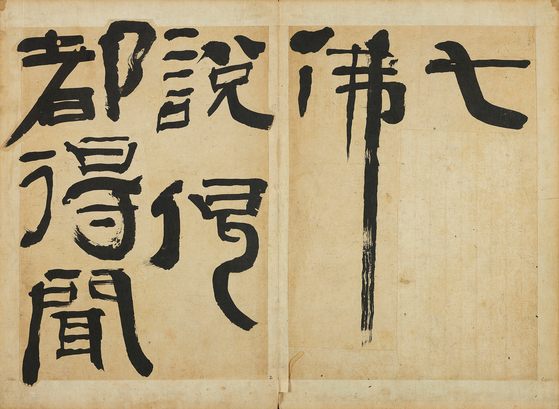 七
佛
說偈
都得聞